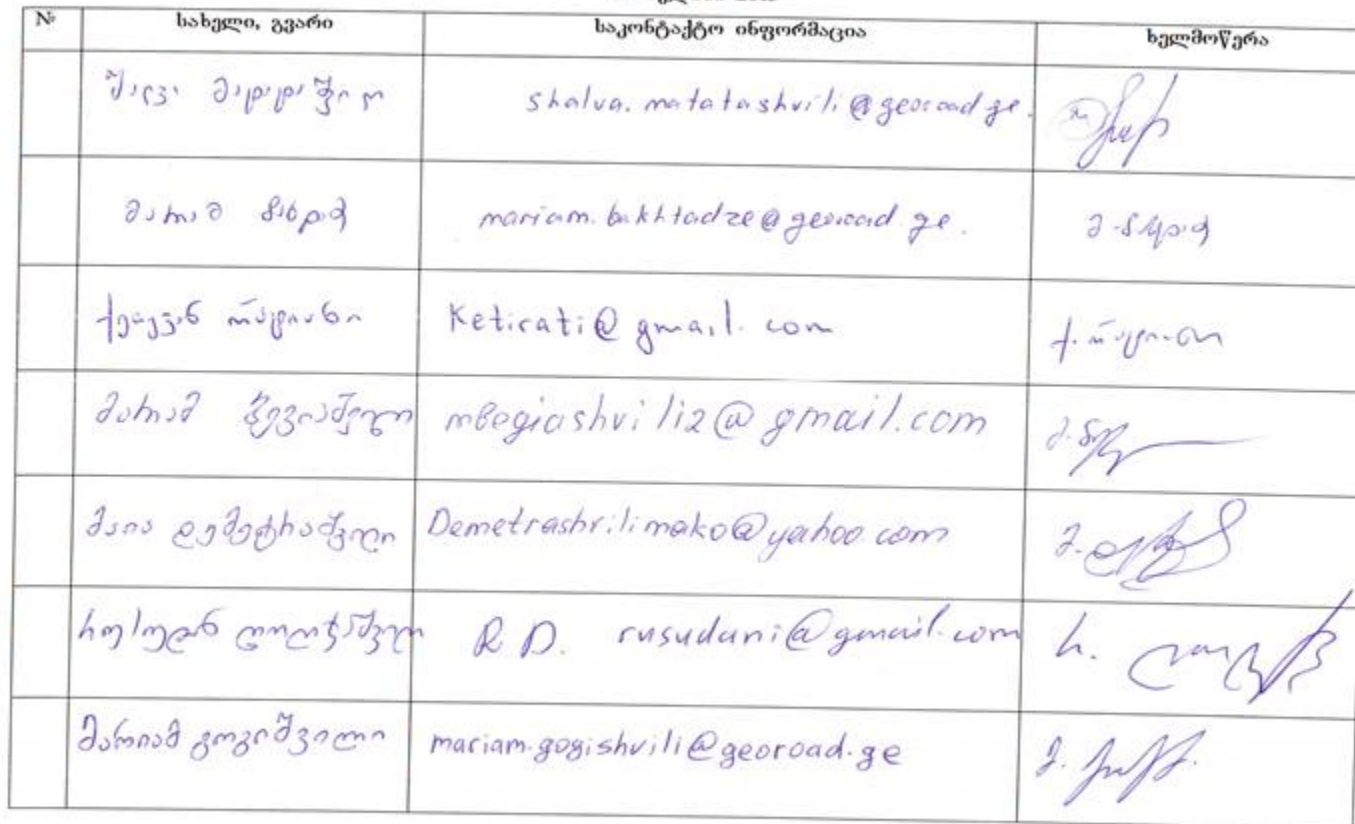 № სახელი, გვარი საკონტაქტო ინფორმაცია ხელმოწერა
შალვა მატატაშვილი shalva.matatashvili@georoad.ge.
მარიამ ბახტაძე mariam.bakhtadze@georoad.ge.
ქეთევან რატიანი Keticati@gmail.com ქ. რატიანი
მარიამ ბეგიაშვილი mBegiashvili2@gmail.com
მაია დემეტრაშვილი Demetrashvilimako@yahoo.com
რუსუდან R.D. rusudani@gmail.com
მარიამ გოგიშვილი mariam.gogishvili@georoad.ge